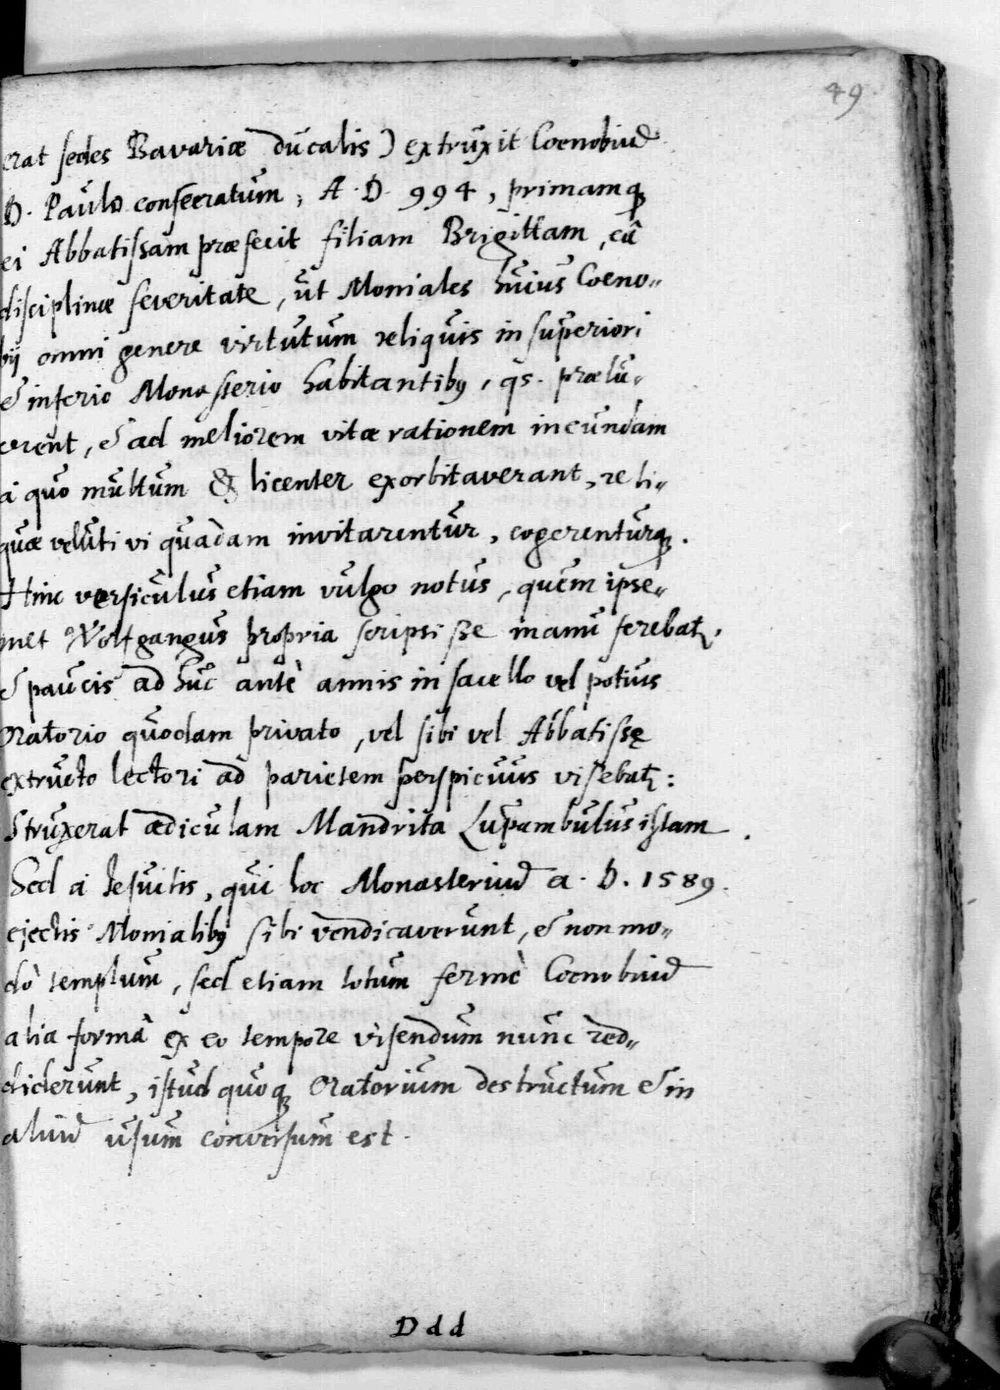 49
erat sedes Bavariæ ducalis) extruxit Coenobiũ
D. Paulo consecratum, A. D. 994, primamq́;
ei Abbatissam præfecit filiam Brigittam, eâ
disciplinæ severitate, ut Moniales huius Coeno-
bij omni genere virtutum reliquis in superiori
& inferio Monasterio habitantibꝰ, qs. prælu-
cerent, & ad meliorem vitæ rationem ineundam
à quo multum & licenter exorbitaverant, reli-
quæ veluti vi quadam invitarentur, cogerenturq́;.
Hinc versiculus etiam vulgo notus, quem ipse-
met Wolfgangus propria scripsisse manu ferebat͛,
& paucis ad huc antè annis in sacello vel potius
Oratorio quodam privato, vel sibi vel Abbatissę
extructo lectori ad parietem perspicuus visebat͛:
Struxerat ædiculam Mandrita Lupambulus istam.
Sed à Iesuitis, qui hoc Monasteriũ a. D. 1589.
ejectis Monialibꝰ sibi vendicaverunt, & non mo-
dò templum, sed etiam totum fermè Coenobiũ
alia formâ ex eo tempore visendum nunc red-
diderunt, istud quoq́; Oratorium destructum & in
aliũ usum conversum est.
D d d